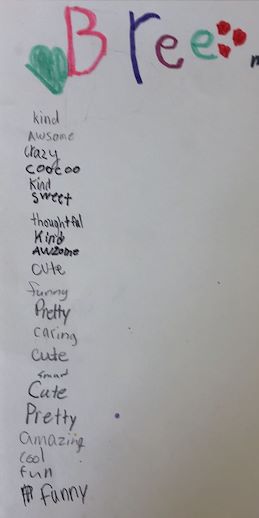 Bree
kind
Awsome
Crazy
coocoo
Kind
sweet
thoughtful
Kind
Awzome
cute
funny
Pretty
caring
cute
smart
Cute
Pretty
amazing
cool
fun
funny